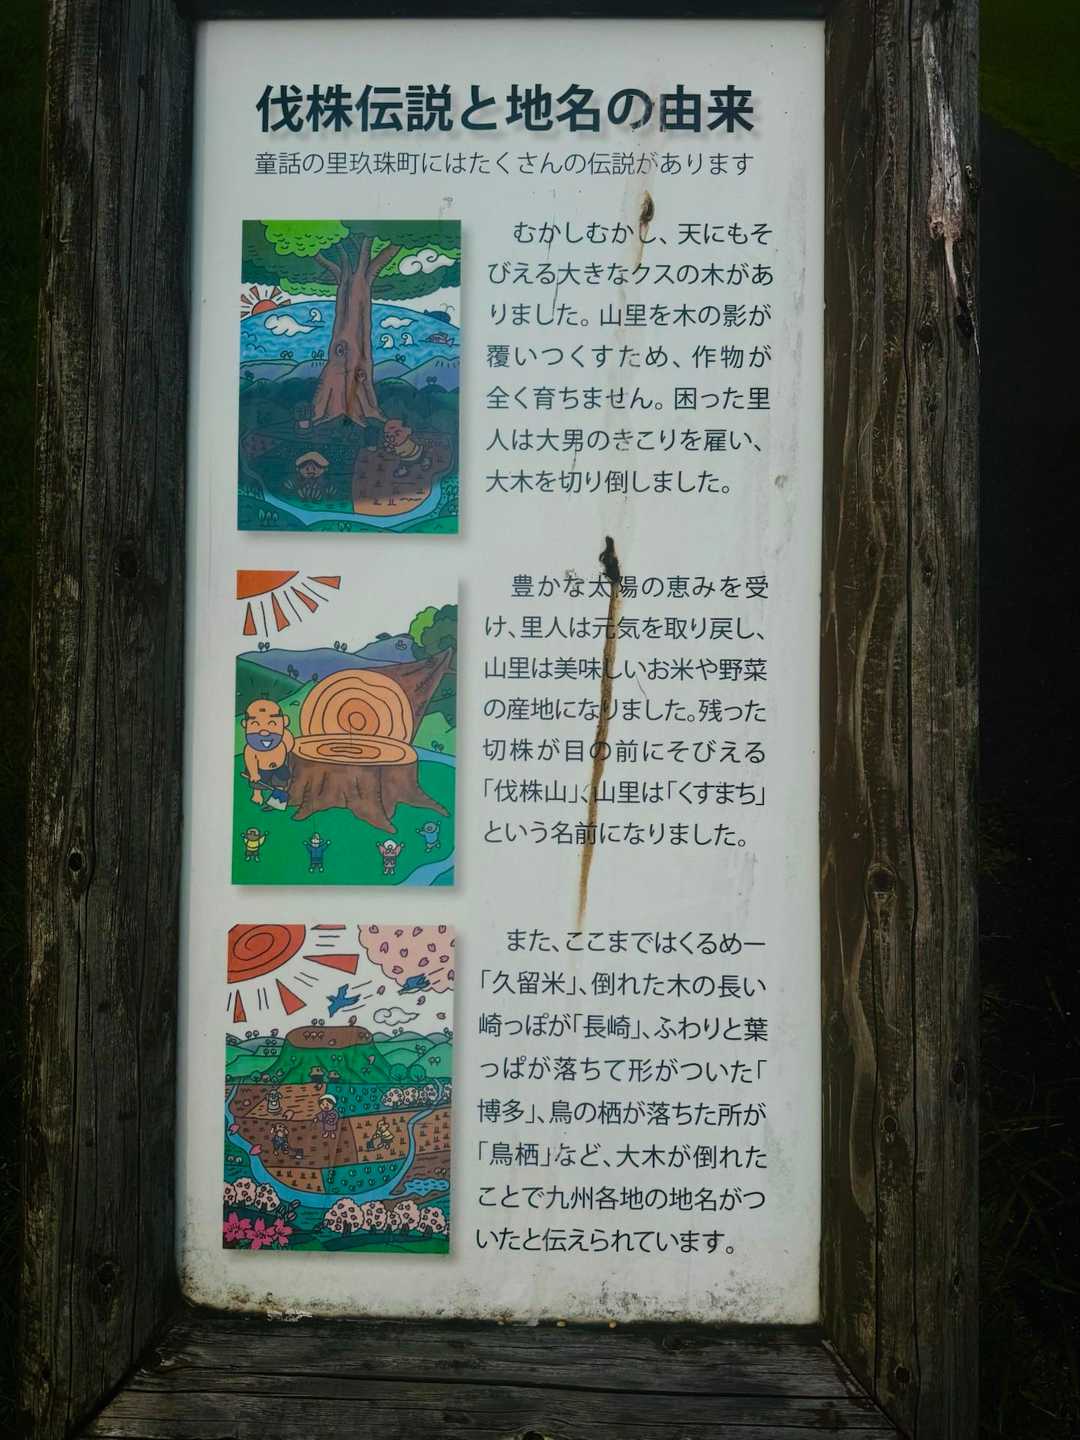 伐株伝説と地名の由来
童話の里玖珠町にはたくさんの伝説があります
むかしむかし、天にもそ
びえる大きなクスの木があ
りました。山里を木の影が
覆いつくすため、作物が
全く育ちません。困った里
人は大男のきこりを雇い、
大木を切り倒しました。
豊かな太陽の恵みを受
け、里人は元気を取り戻し、
山里は美味しいお米や野菜
の産地になりました。残った
切株が目の前にそびえる
「伐株山」、山里は「くすまち」
という名前になりました。
また、ここまではくるめー
「久留米」、倒れた木の長い
崎っぽが「長崎」、ふわりと葉
っぱが落ちて形がついた「
博多」、鳥の栖が落ちた所が
「鳥栖」など、大木が倒れた
ことで九州各地の地名がつ
いたと伝えられています。